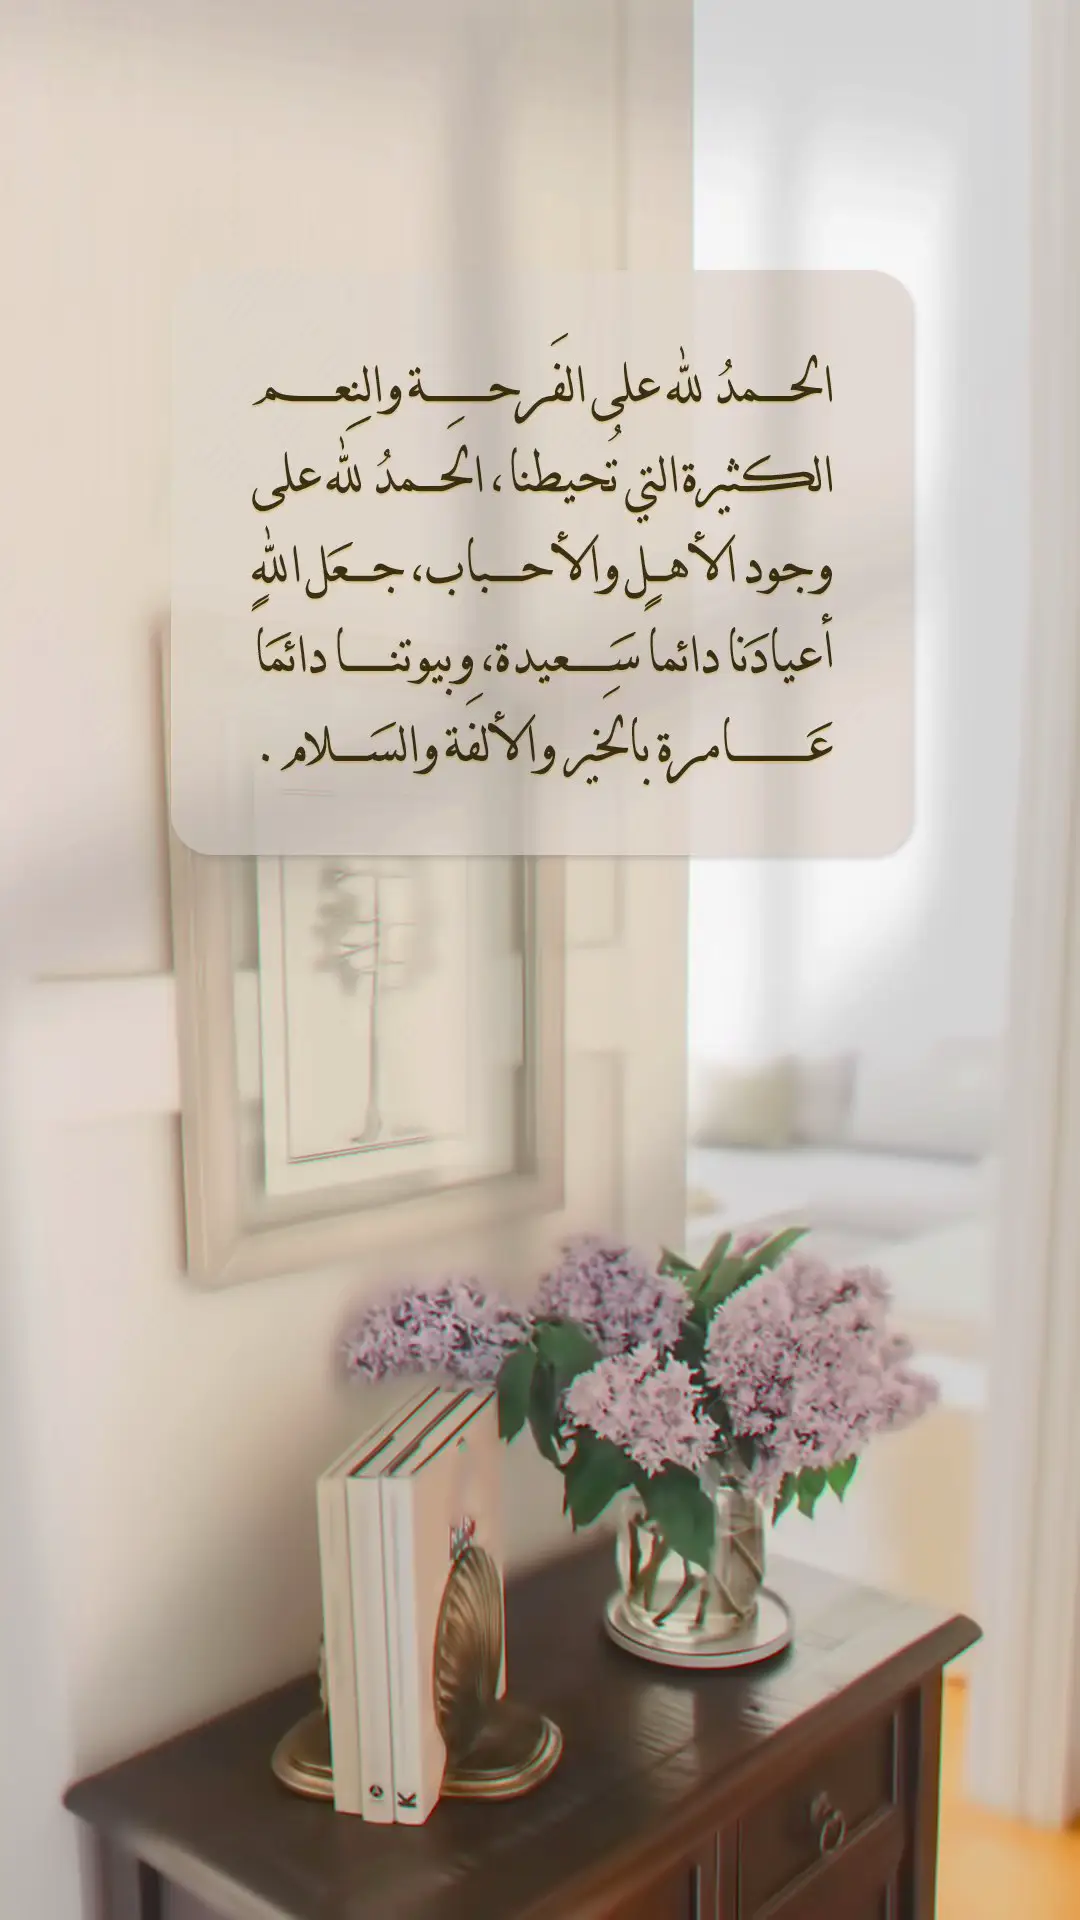 الحمدُ لله على الفَرحِة والنِعم
الكثيرة التي تُحيطنا، الحمدُ لله على
وجود الأهلِ والأحباب، جعَل اللهِ
أعيادَنا دائماً سَعِيدة، وبيوتنا دائمَاً
عَامرة بالخير والألفَة والسَلام .
K